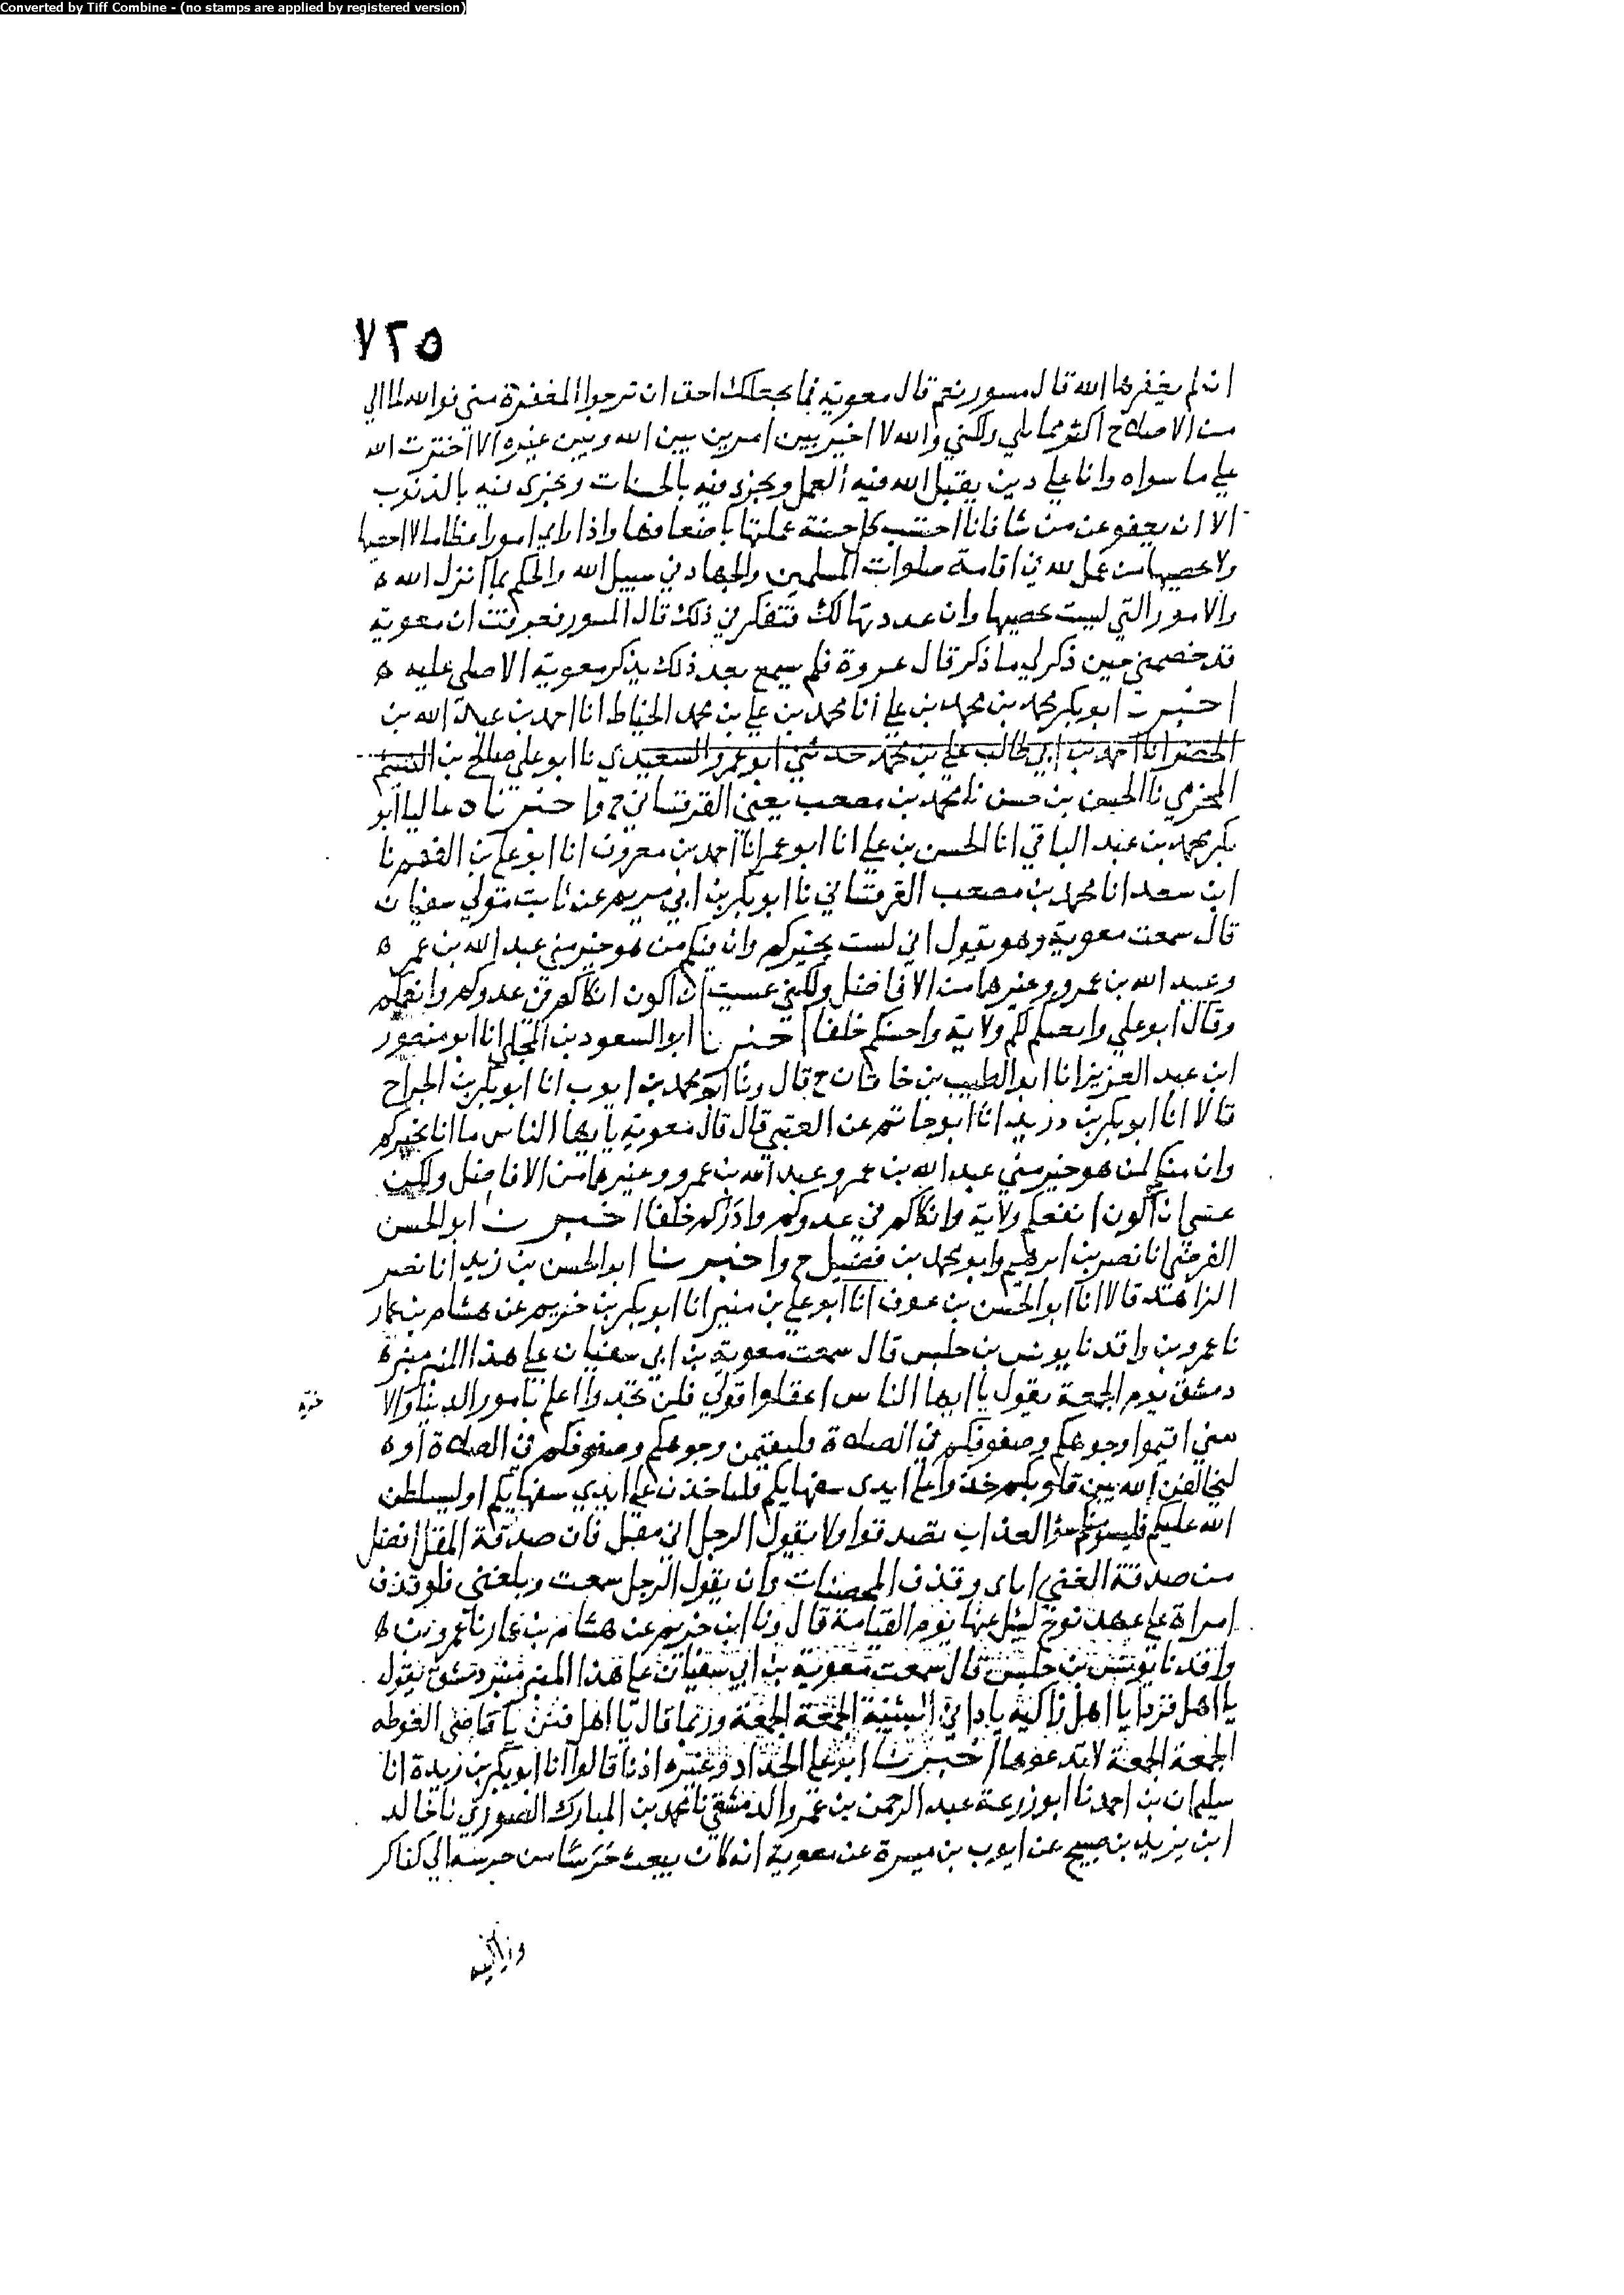 Converted by Tiff Combine - (no stamps are applied by registered version)
٧٢٥
ان لم يغفرها الله قال مسور نعم قال معوية فما يجعلك احق ان ترجوا المغفرة مني فوالله لما الي
من الاصلاح اكثر مما يلي ولكني والله لا اخير بين امرين بين الله وبين غيره الا اخترت الله
علي ما سواه وانا علي دين يقبل الله فيه العمل ويجزى فيه بالحسنات ويجزى فيه بالذنوب
الا ان يعفو عن من شا فانا احتسب كل حسنة عملتها باضعافها واذا راي امورا عظاما لا احصيها
ولا تحصيها من عمل لله في اقامة صلوات المسلمين والجهاد في سبيل الله والحكم بما انزل الله ه
والامور التي ليست تحصيها وان عددتها لك فتفكر في ذلك قال المسور فعرفت ان معوية
قد خصمني حين ذكر لي ما ذكر قال عروة فلم يسمع بعد ذلك يذكر معوية الا صلى عليه ه
اخبرنا ابو بكر محمد بن محمد بن علي انا محمد بن علي بن محمد الخياط انا احمد بن عبد الله بن
الخضر انا احمد بن ابي طالب علي بن محمد حدثني ابو عمرو السعيدي نا ابو علي صالح بن
المخرمي نا الحسن بن حسن نا محمد بن مصعب يعني القرقساني ح واخبرناه عاليا ابو
بكر محمد بن عبد الباقي انا الحسن بن علي انا ابو عمر انا احمد بن معروف انا ابو علي بن الفهم نا
ابن سعد انا محمد بن مصعب القرقساني نا ابو بكر بن ابي مريم عن ثابت مولي سفيان
قال سمعت معوية وهو يقول اني لست بخيركم وان منكم من هو خير مني عبد الله بن عمر ه
وعبد الله بن عمرو وغيرهما من الافاضل ولكني عسيت ان اكون انكاكم في عدوكم وانعمكم
وقال ابو علي وانعمكم لكم ولاية واحسنكم خلقا اخبرنا ابو السعود بن المجلي انا ابو منصور
ابن عبد العزيز انا ابو الطيب بن خاقان ح قال ونا ابو محمد بن ايوب انا ابو بكر بن الجراح
قالا انا ابو بكر بن دريد انا ابو حاتم عن العتبي قال قال معوية يا ايها الناس ما انا بخيركم
وان منكم لمن هو خير مني عبد الله بن عمر وعبد الله بن عمرو وغيرهما من الافاضل ولكن
عسي ان اكون انفعكم ولاية وانكاكم في عدوكم وادركم خلفا اخبرنا ابو الحسن
الفرضي انا نصر بن ابرهيم وابو محمد بن فضيل ح واخبرنا ابو الحسن بن زيد انا نصر
الزاهد قالا انا ابو الحسن بن عوف انا ابو علي بن منير انا ابو بكر بن خريم عن هشام بن عمار
نا عمرو بن واقد نا يونس بن حلبس قال سمعت معوية بن ابي سفيان علي هذا المنبر منبره
دمشق يوم الجمعة يقول يا ايها الناس اعقلوا قولي فلن تجدوا اعلم بامور الدنيا والا
مني اقيموا وجوهكم وصفوفكم في الصلاة فليقيمن وجوهكم وصفوفكم في الصلاة او ه
ليخالفن الله بين قلوبكم خذوا علي ايدى سفهايكم فلتاخذن علي ايدي سفهايكم او ليسلطن
الله عليكم فليسومنكم سؤ العذاب تصدقوا ولا يقول الرجل اني مقل فان صدقة المقل افضل
من صدقة الغني اياى وقذف المحصنات وان يقول الرجل سمعت وبلغني فلو قذف
امراة علي عهد نوح ليسل عنها يوم القيامة قال ونا ابن خريم عن هشام بن عمار نا عمرو بن ه
واقد نا يونس بن حلبس قال سمعت معوية بن ابي سفيان علي هذا المنبر منبر دمشق يقول
يا اهل قردا يا اهل زاكية يا داني البثنية الجمعة الجمعة وربما قال يا اهل قنن يا قاصي الغوطه
الجمعة الجمعة لا تدعوها اخبرنا ابو علي الحداد وغيره اذنا قالوا انا ابو بكر بن ريذة انا
سليمان بن احمد نا ابو زرعة عبد الرحمن بن عمرو الدمشقي نا محمد بن المبارك الصوري نا خالد
ابن يزيد بن صبيح عن ايوب بن ميسرة عن معوية انه كان يبعث حرسا من حرسه الي كناكر
وزاكيه